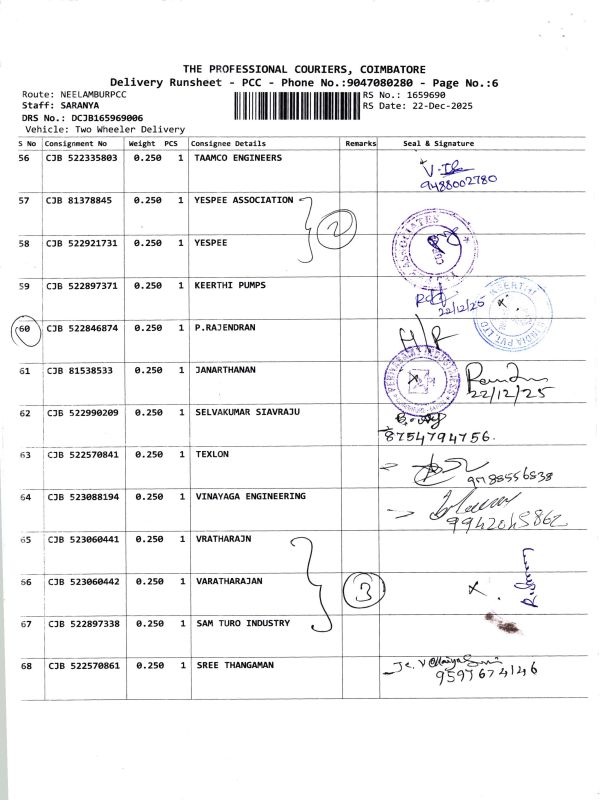 THE PROFESSIONAL COURIERS, COIMBATORE
Delivery Runsheet - PCC - Phone No.:9047080280 - Page No.:6
Route: NEELAMBURPCC
RS No.: 1659690
Staff: SARANYA
RS Date: 22-Dec-2025
DRS No.: DCJB165969006
Vehicle: Two Wheeler Delivery
S No Consignment No Weight PCS Consignee Details Remarks Seal & Signature
56 CJB 522335803 0.250 1 TAAMCO ENGINEERS
9488002780
57 CJB 81378845 0.250 1 YESPEE ASSOCIATION
2
58 CJB 522921731 0.250 1 YESPEE
59 CJB 522897371 0.250 1 KEERTHI PUMPS
22/12/25
60 CJB 522846874 0.250 1 P.RAJENDRAN
61 CJB 81538533 0.250 1 JANARTHANAN
22/12/25
62 CJB 522990209 0.250 1 SELVAKUMAR SIAVRAJU
8754794756.
63 CJB 522570841 0.250 1 TEXLON
64 CJB 523088194 0.250 1 VINAYAGA ENGINEERING
65 CJB 523060441 0.250 1 VRATHARAJN
66 CJB 523060442 0.250 1 VARATHARAJAN
3
67 CJB 522897338 0.250 1 SAM TURO INDUSTRY
68 CJB 522570861 0.250 1 SREE THANGAMAN
9597674146